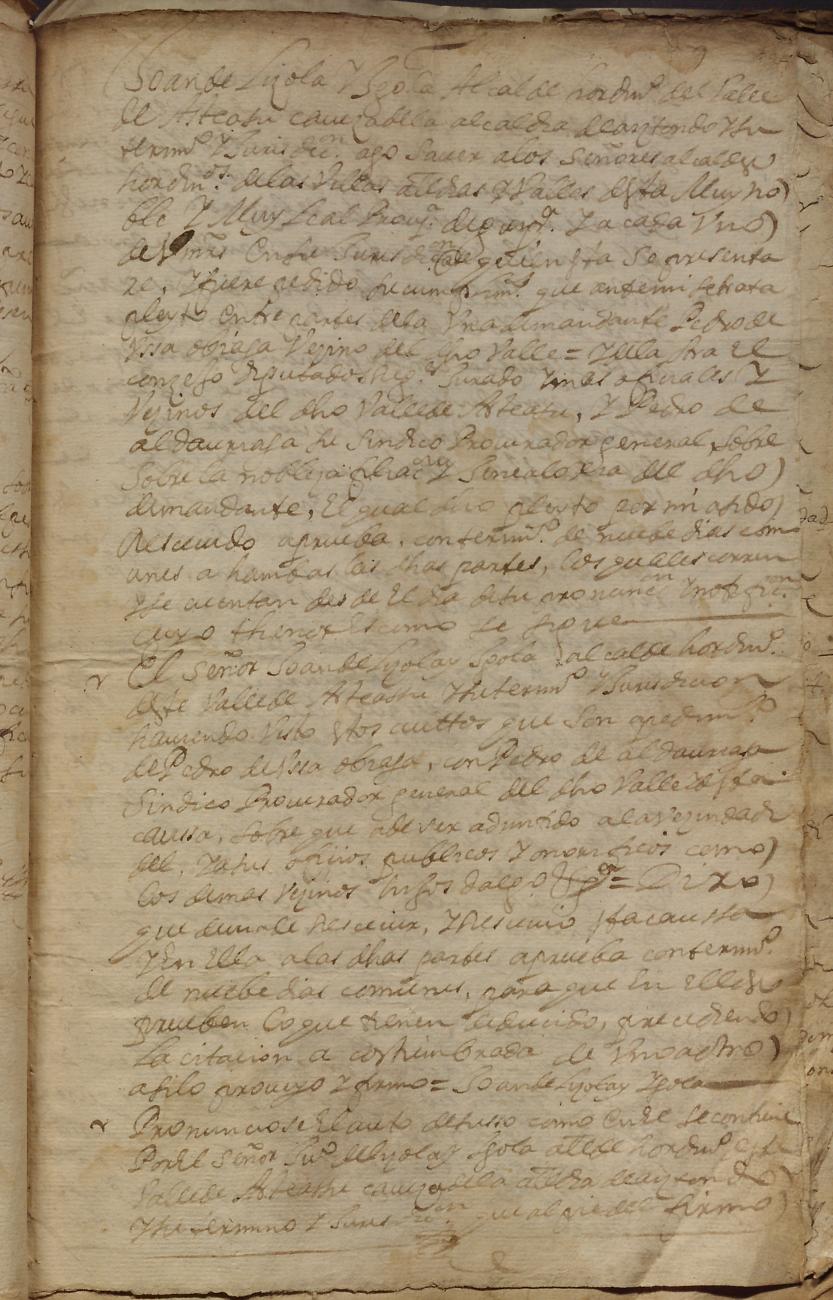 Joan de Lizola Y Yzola Alcalde hordin.º del Valle
de Asteasu caveza de la alcaldia de aytondo Y su
termi.º Y Jurisdic.on ago saver a los Señores alcaldes
hordin.os de las Villas alldias Y Valles desta Muy no
ble Y Muy Leal Prov.ª de guip.ª Y a cada Vno
de Vmrs en su Jurisdi.on ante quien esta se presenta
re, Y fuere pedido su cumplim.º que ante mi se trata
pleyto entre partes de la Vna demandante Pedro de
Vssa obiaga Vezino del dho Valle = Y de la otra El
conzejo diputados Reg.s Jurado Y mas ofiziales Y
Vezinos del dho Valle de Asteasu, Y Pedro de
aldaurriaga su Sindico Procurador general, sobre
sobre la nobleza filiac.on Y Genealoxia del dho
demandante, El qual dho pleyto por mi a sido
Resceuido a prueba, con termi.º de nuebe dias com
unes a hambas las dhas partes, los quales corren
Y se cuentan desde El dia de su pronunci.on Y notific.on
cuyo thenor Es como se sigue
El Señor Joan de Lizola Y Yzola alcalde hordin.º
deste Valle de Asteasu Y su termi.º Y Jurisdicion
hauiendo Visto estos auttos que son a pedim.º
de Pedro de Vssa obiaga, con Pedro de aldaurriaga
Sindico Procurador general del dho Valle Y desta
caussa, sobre que a de ser admitido a la vezindad
del, Y a sus ofizios publicos Y onorificos como
los demas vezinos hijos dalgo = Dixo
que deuia de Resceuir, Y Resceuio esta caussa
Y En Ella a las dhas partes a prueba con termi.º
de nuebe dias comunes, para que En Ellos
prueben lo que tienen deducido, precediendo
la citacion acostumbrada de Vno a otro
asi lo proveyo Y firmo = Joan de Lizola Y Yzola
Pronunciose El auto de suso como En El se contiene
Por El Señor Ju.º de Lizola Y Yzola allde hordin.º deste
Valle de Asteasu caveza de la alldia de aytondo
Y su termino Y Jurisdic.on que al pie del firmo